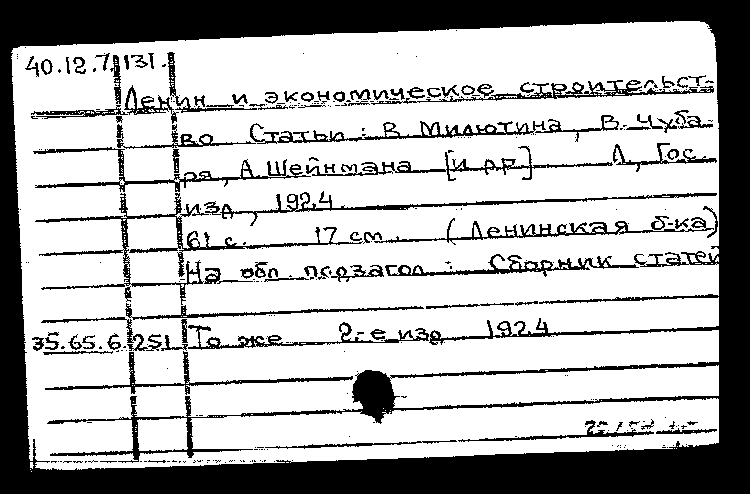 40.12.7.131.
Ленин и экономическое строительст-
во Статьи: В. Милютина, В. Чуба-
ря, А. Шейнмана [и др.] Л., Гос.
изд., 1924.
61 с. 17 см. (Ленинская б-ка)
На обл. подзагол.: Сборник статей
35.65.6.251 То же 2-е изд. 1924